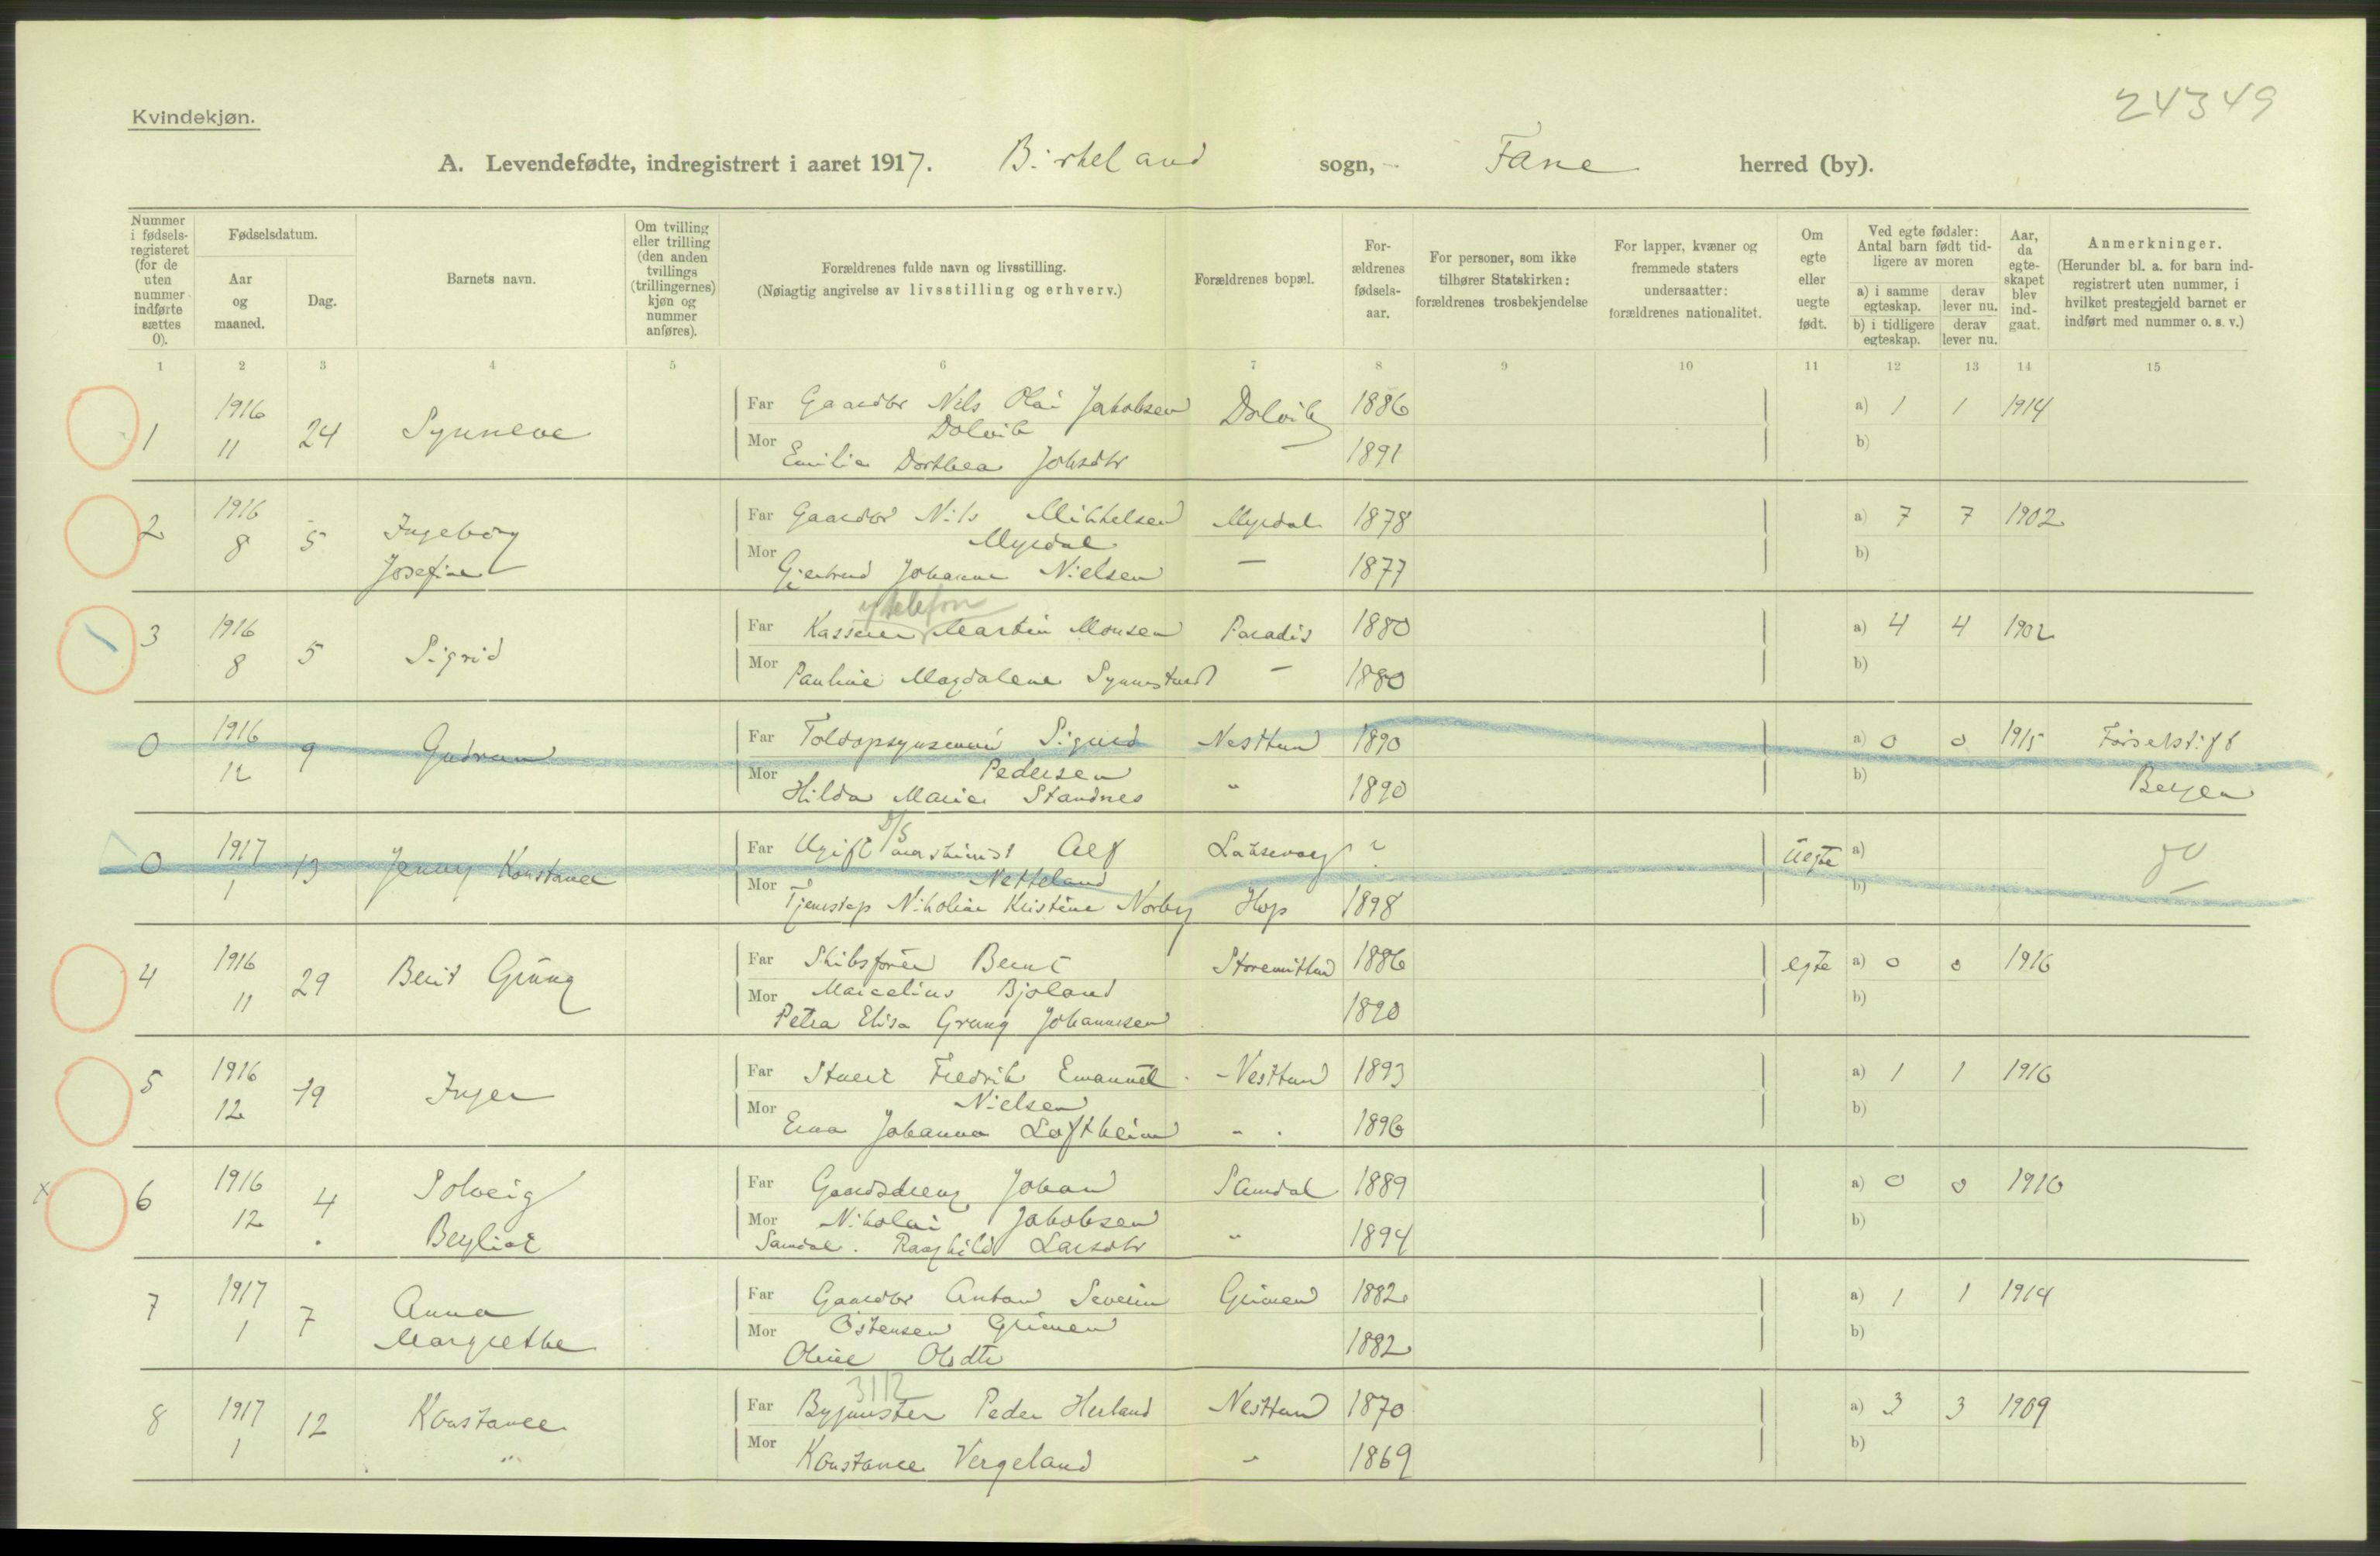 24349
Kvindekjøn.
A. Levendefødte, indregistrert i aaret 1917. Birkeland sogn, Fane herred (by).
Nummer i fødselsregisteret (for de uten nummer indførte sættes 0).
Fødselsdatum.
Aar og maaned.
Dag.
Barnets navn.
Om tvilling eller trilling (den anden tvillings (trillingernes) kjøn og nummer anføres).
Forældrenes fulde navn og livsstilling.
(Nøiagtig angivelse av livsstilling og erhverv.)
Forældrenes bopæl.
Forældrenes fødselsaar.
For personer, som ikke tilhører Statskirken: forældrenes trosbekjendelse
For lapper, kvæner og fremmede staters undersaatter: forældrenes nationalitet.
Om egte eller uegte født.
Ved egte fødsler: Antal barn født tidligere av moren
a) i samme egteskap. derav lever nu.
b) i tidligere egteskap. derav lever nu.
Aar, da egteskapet blev indgaat.
Anmerkninger.
(Herunder bl. a. for barn indregistrert uten nummer, i hvilket prestegjeld barnet er indført med nummer o. s. v.)
1 2 3 4 5 6 7 8 9 10 11 12 13 14 15
1 1916 11 24 Synneve
Far Gaardbr Nils Olai Jakobsen Dolvik Dolvik 1886 a) 1 1 1914
Mor Emilie Dorthea Johsdtr — 1891 b)
2 1916 8 5 Ingeborg Josefine
Far Gaardbr Nils Mikkelsen Myrdal Myrdal 1878 a) 7 7 1902
Mor Gjertrud Johanne Nielsen — 1877 b)
3 1916 8 5 Sigrid
Far Kasserer v/telefon Martin Monsen Paradis 1880 a) 4 4 1902
Mor Pauline Magdalene Synnestvedt — 1880 b)
0 1916 12 9 Gudrun
Far Toldopsynsmand Sigurd Pedersen Nesttun 1890 a) 0 0 1915 Fødselsstift
Mor Hilda Marie Standnes " 1890 b) Bergen
0 1917 1 13 Jenny Konstance
Far Ugift D/S maskinist Alf Netteland Laksevaag ? Uegte a)
Mor Tjenestep Nikoline Kristine Norby Hop 1898 b)
4 1916 11 29 Berit Grung
Far Skibsfører Bernt Marcelius Bjoland Storemittun 1886 egte a) 0 0 1916
Mor Petra Elisa Grung Johannesen 1890 b)
5 1916 12 19 Inger
Far Stuert Fredrik Emanuel Nielsen Nesttun 1893 a) 1 1 1916
Mor Erna Johanna Loftheim " 1896 b)
6 1916 12 4 Solveig Bergliot
Far Gaardsdreng Johan Nikolai Jakobsen Samdal Samdal 1889 a) 0 0 1916
Mor Ragnhild Larsdtr " 1894 b)
7 1917 1 7 Anna Margrethe
Far Gaardbr Anton Severin Østensen Grimen Grimen 1882 a) 1 1 1914
Mor Oline Olsdtr 1882 b)
3112
8 1917 1 12 Konstance "
Far Bygmester Peder Herland Nesttun 1870 a) 3 3 1909
Mor Konstance Vergeland " 1869 b)